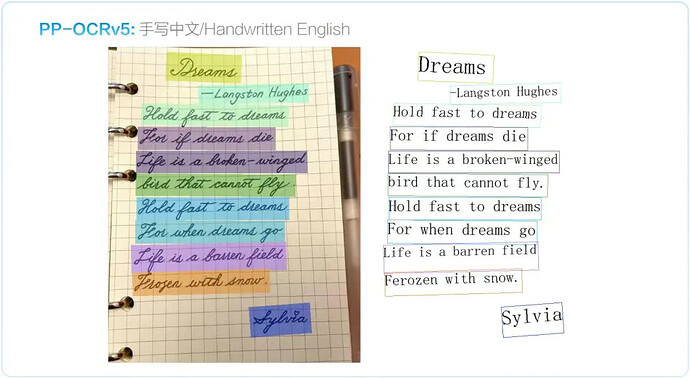 PP-OCRv5: 手写中文/Handwritten English
Dreams
—Langston Hughes
Hold fast to dreams
For if dreams die
Life is a broken-winged
bird that cannot fly.
Hold fast to dreams
For when dreams go
Life is a barren field
Frozen with snow.
Sylvia
Dreams
-Langston Hughes
Hold fast to dreams
For if dreams die
Life is a broken-winged
bird that cannot fly.
Hold fast to dreams
For when dreams go
Life is a barren field
Ferozen with snow.
Sylvia